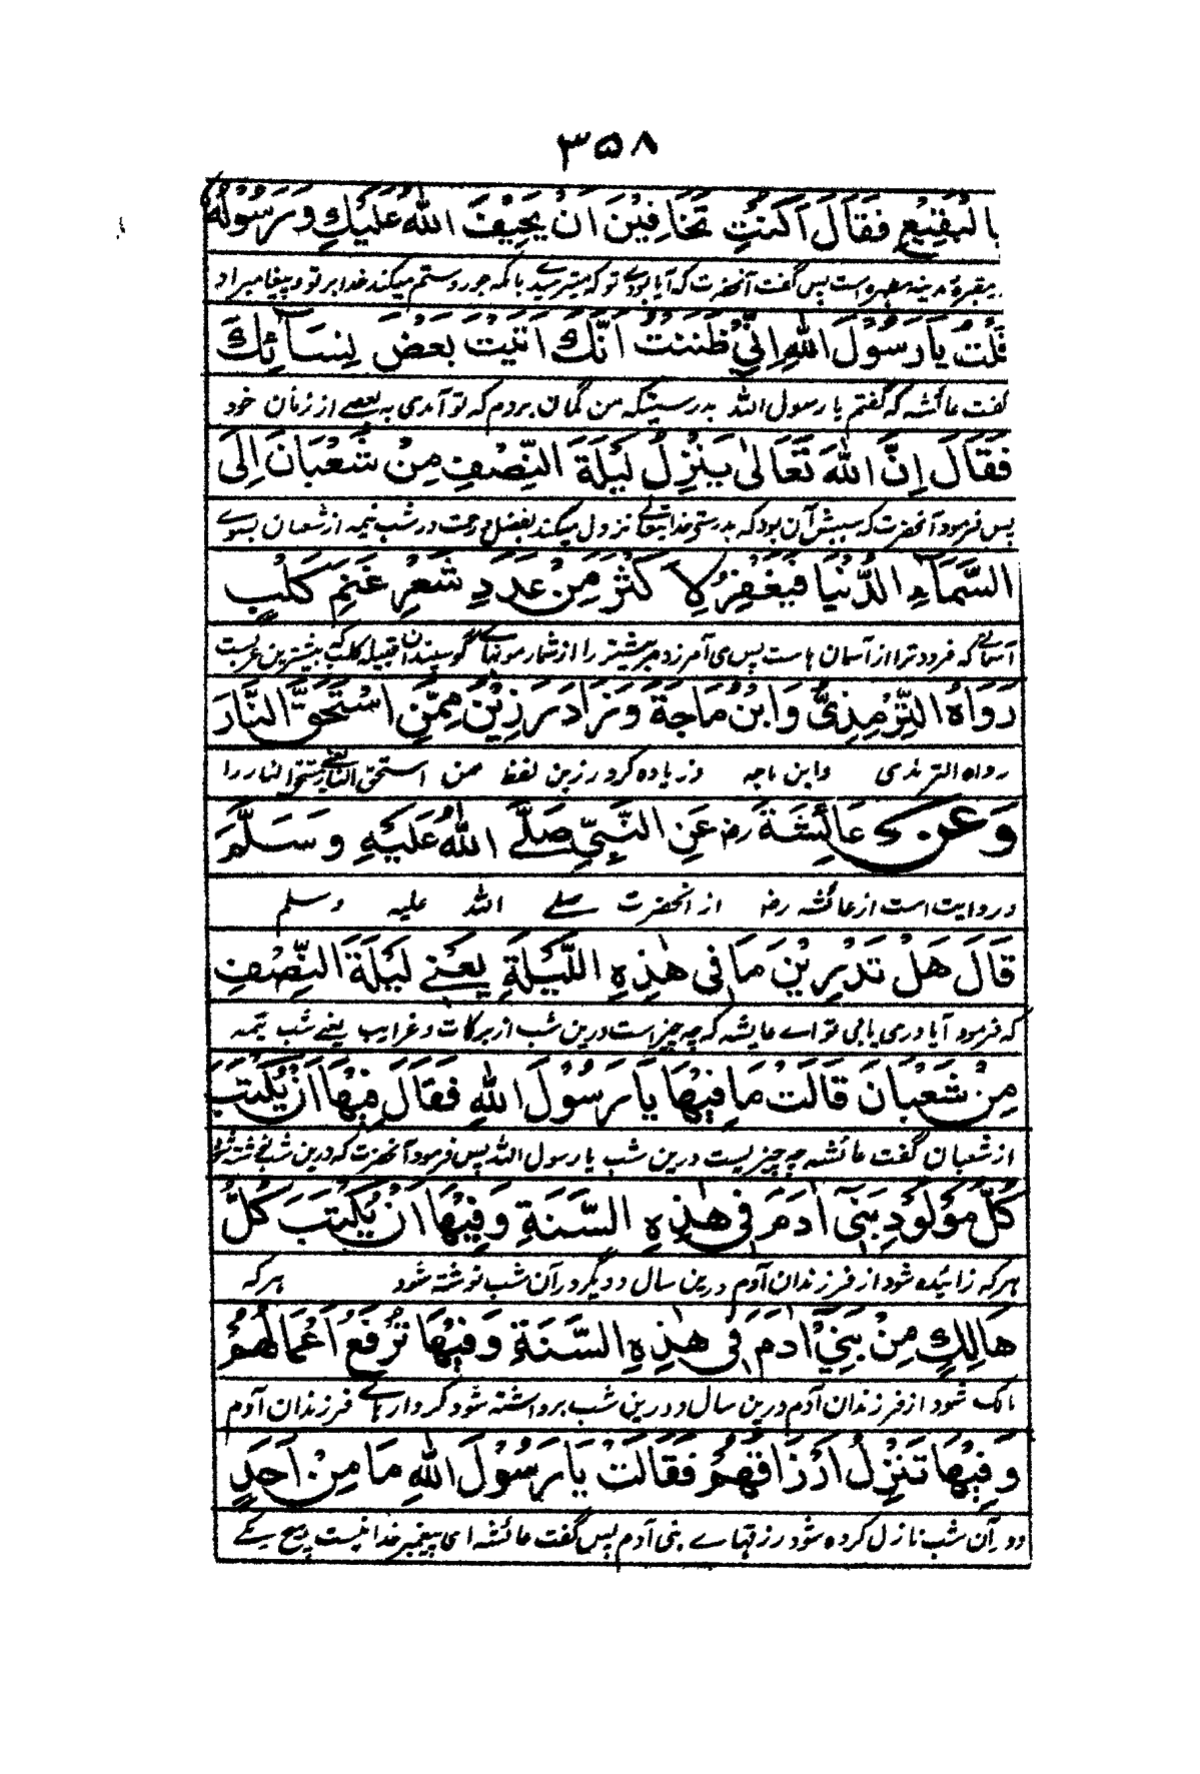 ۳۵۸
بِالْبَقِيْعِ فَقَالَ اَكُنْتِ تَخَافِيْنَ اَنْ يَّحِيْفَ اللّٰهُ عَلَيْكِ وَرَسُوْلُهُ
بمقبرۀ مدینه مطهره است پس گفت آنحضرت که آیا بودے تو که میترسیدے بآنکه جور و ستم میکند خدا بر تو و پیغامبر او
قُلْتُ يَا رَسُوْلَ اللّٰهِ اِنِّيْ ظَنَنْتُ اَنَّكَ اَتَيْتَ بَعْضَ نِسَآئِكَ
گفت عائشه که گفتم یا رسول الله بدرستیکه من گمان بردم که تو آمدی به بعضے از زنان خود
فَقَالَ اِنَّ اللّٰهَ تَعَالٰى يَنْزِلُ لَيْلَةَ النِّصْفِ مِنْ شَعْبَانَ اِلَى
پس فرمود آنحضرت که سببش آن بود که بدرستی خدایتعالے نزول میکند بفضل و رحمت در شب نیمه از شعبان بسوے
السَّمَآءِ الدُّنْيَا فَيَغْفِرُ لِاَكْثَرَ مِنْ عَدَدِ شَعْرِ غَنَمِ كَلْبٍ
آسمانے که فرود تر از آسمان هاست پس می آمرزد مر بیشتر را از شمار مویهاے گوسپندان قبیله کلب که بیشترین عرب ست
رَوَاهُ التِّرْمِذِيُّ وَابْنُ مَاجَةَ وَزَادَ رَزِيْنٌ مِمَّنِ اسْتَحَقَّ النَّارَ
رواه الترمذی وابن ماجه و زیاده کرد رزین لفظ ممن استحق النار یعنے مستحق النار را
وَعَنْ عَائِشَةَ رض عَنِ النَّبِيِّ صَلَّے اللّٰهُ عَلَيْهِ وَسَلَّمَ
و روایت است از عائشه رض از آنحضرت صلے الله علیه وسلم
قَالَ هَلْ تَدْرِيْنَ مَا فِي هٰذِهِ اللَّيْلَةِ يَعْنِے لَيْلَةَ النِّصْفِ
که فرمود آیا دری یابی تو اے عایشه که چه چیز است درین شب از برکات و غرایب یعنے شب نیمه
مِنْ شَعْبَانَ قَالَتْ مَا فِيْهَا يَا رَسُوْلَ اللّٰهِ فَقَالَ فِيْهَا اَنْ يُّكْتَبَ
از شعبان گفت عائشه چه چیز یست درین شب یا رسول الله پس فرمود آنحضرت که درین شب نوشته شود
كُلُّ مَوْلُوْدِ بَنِيْ اٰدَمَ فِي هٰذِهِ السَّنَةِ وَفِيْهَا اَنْ يُّكْتَبَ كُلُّ
هر که زائیده شود از فرزندان آدم درین سال و دیگر در آن شب نوشته شود هر که
هَالِكٍ مِنْ بَنِيْ اٰدَمَ فِي هٰذِهِ السَّنَةِ وَفِيْهَا تُرْفَعُ اَعْمَالُهُمْ
هالک شود از فرزندان آدم درین سال و درین شب برداشته شود کردارهاے فرزندان آدم
وَفِيْهَا تَنْزِلُ اَرْزَاقُهُمْ فَقَالَتْ يَا رَسُوْلَ اللّٰهِ مَا مِنْ اَحَدٍ
و در آن شب نازل کرده شود رزقهاے بنی آدم پس گفت عائشه ای پیغمبر خدا نیست هیچ یکے